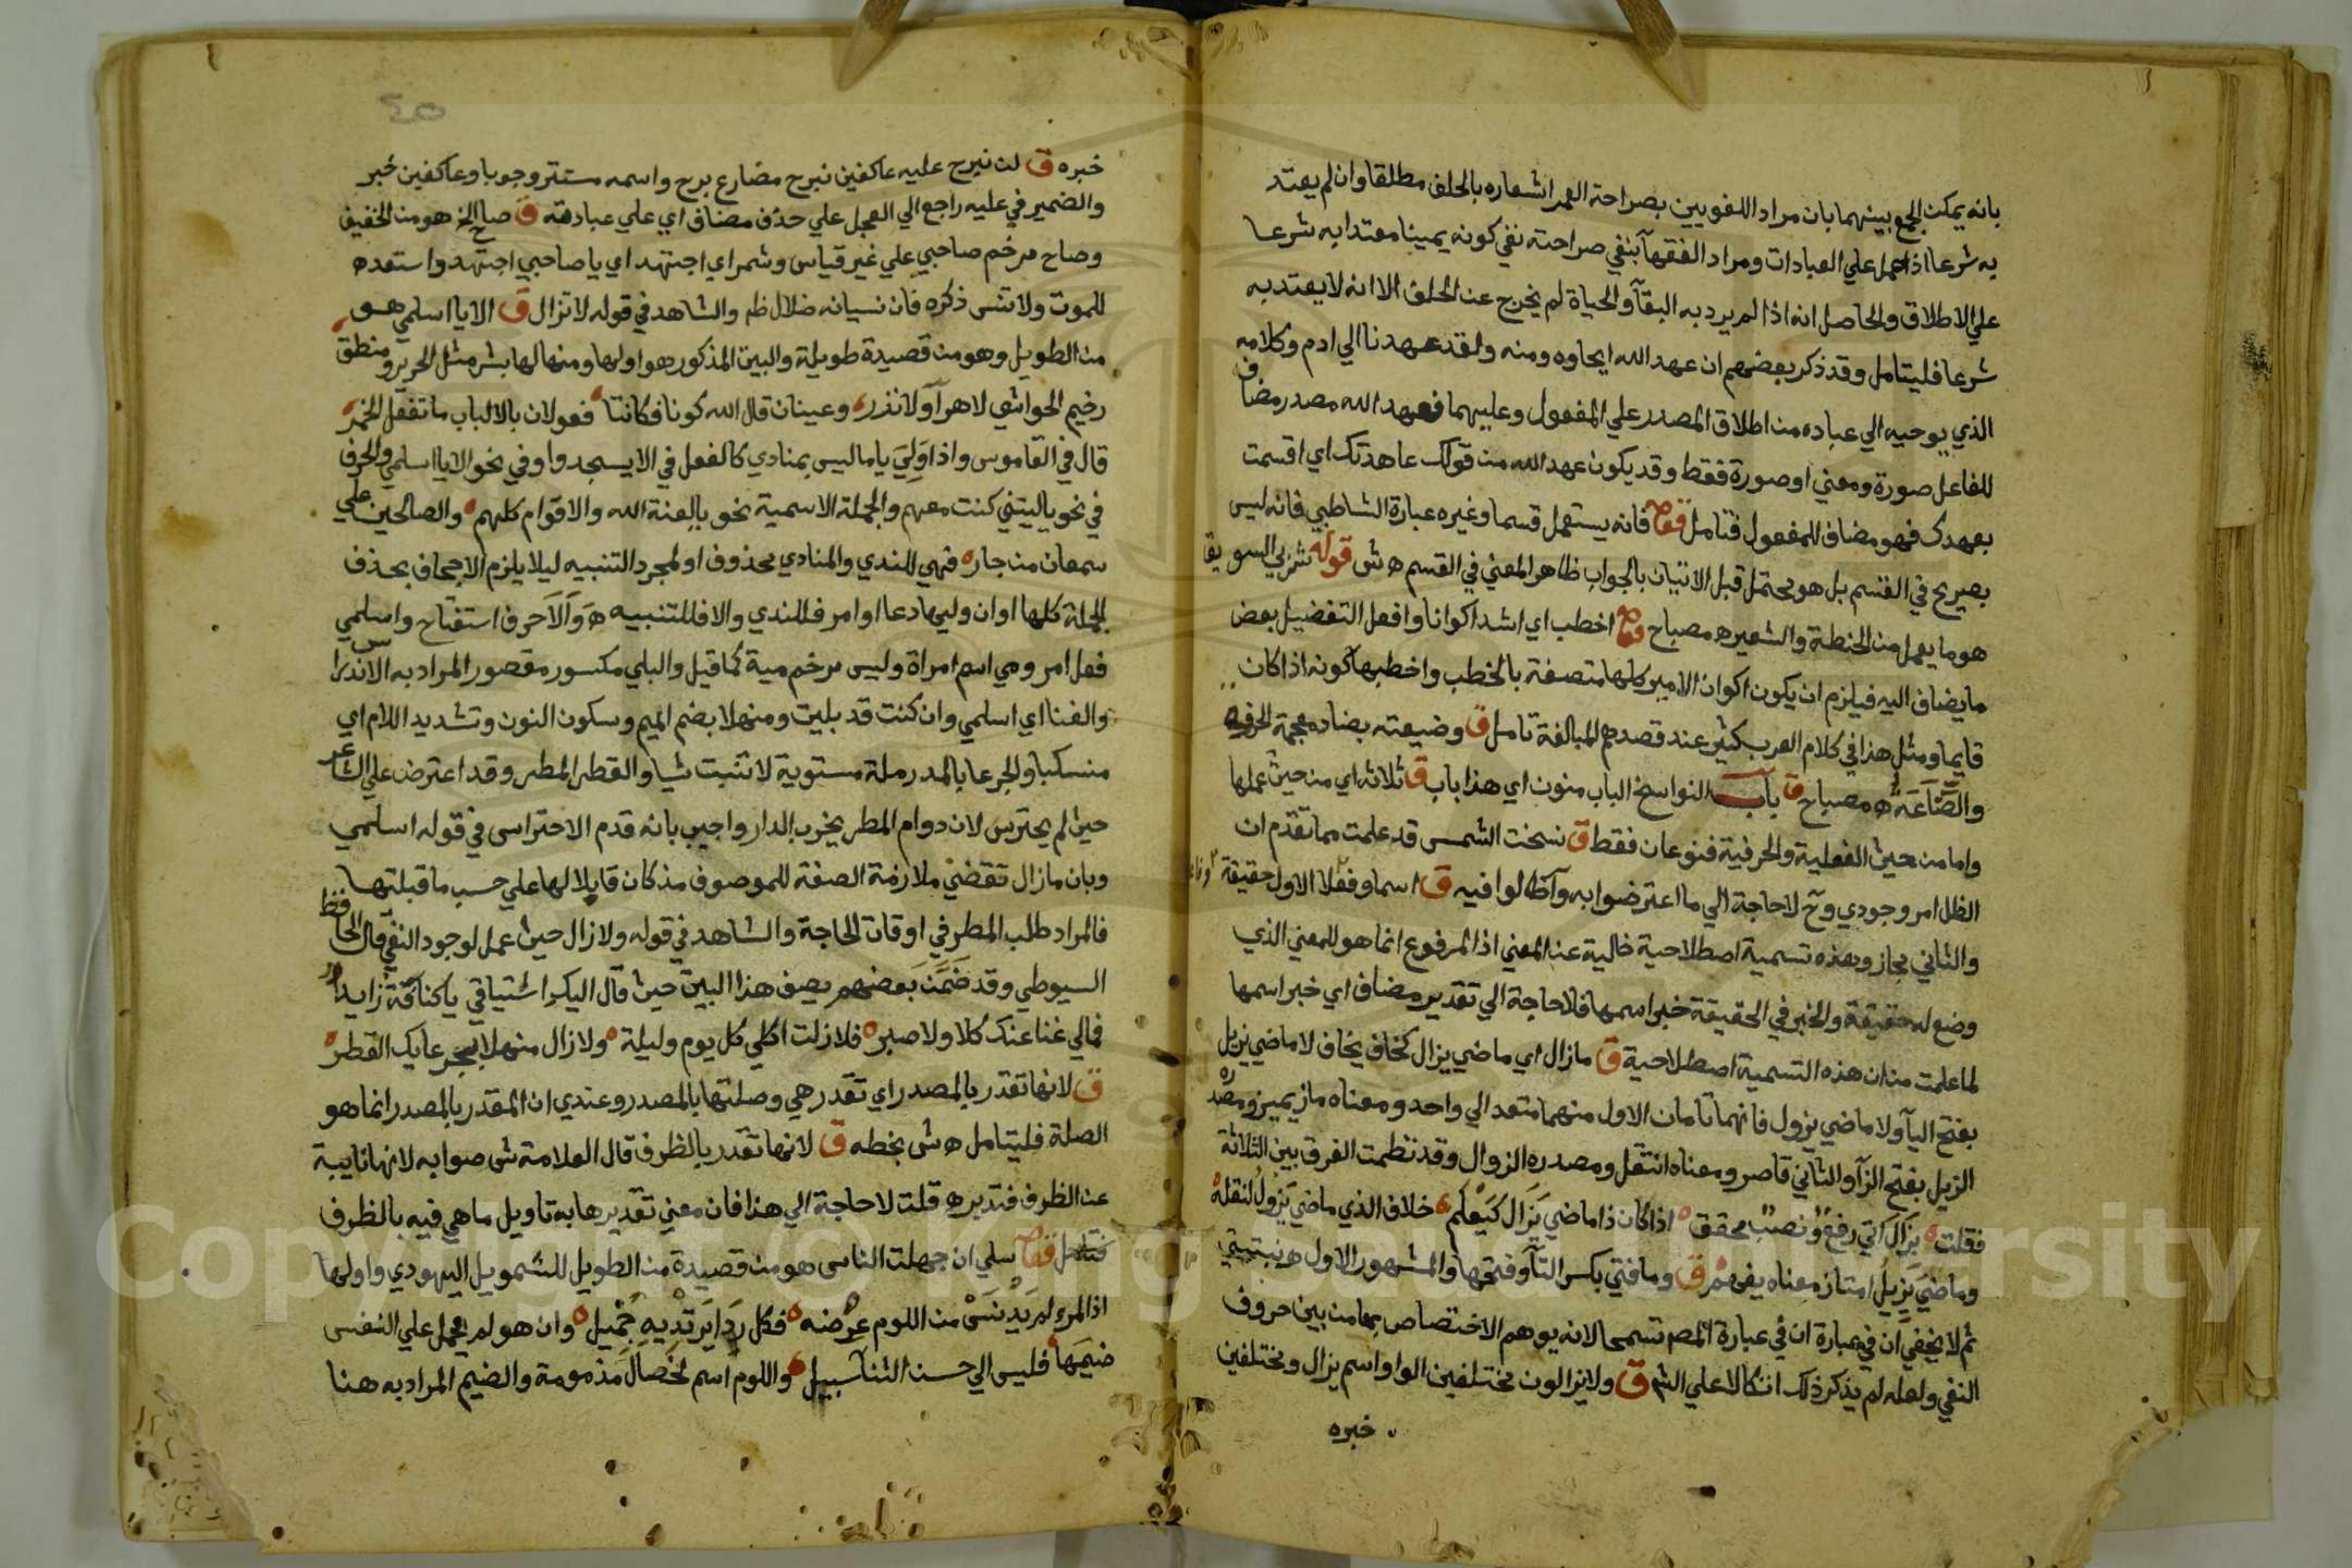 بانه يمكن الجمع بينهما بان مراد اللغويين بصراحة العمر اشعاره بالحلف مطلقا وان لم يعتد
به شرعا اذا حمل علي العبادات ومراد الفقهآ بنفي صراحته نفي كونه يمينا معتدا به شرعا
علي الاطلاق والحاصل انه اذا لم يرد به البقآ والحياة لم يخرج عن الحلف الا انه لا يعتد به
شرعا فليتامل وقد ذكر بعضهم ان عهد الله ايحاوه ومنه ولقد عهدنا الي ادم وكلامه
الذي يوحيه الي عباده من اطلاق المصدر علي المفعول وعليهما فعهد الله مصدر مضاف
للفاعل صورة ومعني او صورة فقط وقد يكون عهد الله من قولك عاهدتك اي اقسمت
بعهدك فهو مضاف للمفعول فتامل فانه يستعمل قسما وغيره عبارة الشاطبي فانه ليس
بصريح في القسم بل هو محتمل قبل الاتيان بالجواب ظاهر المعني في القسم ه ش قوله شربي السويقا
هو ما يعمل من الحنطة والشعيره مصباح اخطب اي اشد اكوانا وافعل التفضيل بعض
ما يضاف اليه فيلزم ان يكون اكوان الامير كلها متصفة بالخطب واخطبها كونه اذا كان
قايما ومثل هذا في كلام العرب كثير عند قصدهم المبالغة تامل ق وضيعته بضاد معجمة الحرفة
والصناعة ه مصباح ق باب النواسخ الباب منون اي هذا باب ق ثلاثه اي من حيث عملها
واما من حيث الفعلية والحرفية فنوعان فقط ق نسخت الشمس قد علمت مما تقدم ان
الظل امر وجودي وح لا حاجة الي ما اعترضوا به وآطالوا فيه ق اسما وفعلا الاول حقيقة
والثاني مجاز وهذه تسمية اصطلاحية خالية عن المعني اذ المرفوع انما هو للمعني الذي
وضع له حقيقة والخبر في الحقيقة خبر اسمها فلا حاجة الي تقدير مضاف اي خبر اسمها
لما علمت من ان هذه التسمية اصطلاحية ق مازال اي ماضي يزال كخاف يخاف لا ماضي يزيل
بفتح اليآ ولا ماضي يزول فانهما تامان الاول منهما متعد الي واحد ومعناه ماز يميز ومصدره
الزيل بفتح الزآ والثاني قاصر ومعناه انتقل ومصدره الزوال وقد نظمت الفرق بين الثلاثة
فقلت يزال اتي رفع ونصب محقق اذا كان ذا ماضي يزال كيعلم خلاف الذي ماضي يزول لنقلة
وماضي يزيل امتاز معناه يفهم ق وما فتي بكسر التآ وفتحها والمشهور الاول ه نبتيتي
ثم لا يخفي ان في عبارة المصـ تسمحا لانه يوهم الاختصاص بهما من بين حروف
النفي ولعله لم يذكر ذلك اتكالا علي الشـ ق ولا يزالون مختلفين الواو اسم يزال ومختلفين
خبره
خبره ق لن نبرح عليه عاكفين نبرح مضارع برح واسمه مستتر وجوبا وعاكفين خبر
والضمير في عليه راجع الي العجل علي حذف مضاف اي علي عبادته ق صاح الخ هو من الخفيف
وصاح مرخم صاحبي علي غير قياس وشمر اي اجتهد اي يا صاحبي اجتهد واستعد
للموت ولا تنس ذكره فان نسيانه ضلال ظم والشاهد في قوله لا تزال ق الا يا اسلمي هو
من الطويل وهو من قصيدة طويلة والبيت المذكور هو اولها ومنها لها بشر مثل الحرير ومنطق
رخيم الحواشي لا هرآ ولا نذر وعينان قال الله كونا فكانتا فعولان بالالباب ما تفعل الخمر
قال في القاموس واذا ولي يا ما ليس بمنادي كالفعل في الا يسجدوا وفي نحو الا يا اسلمي والحرف
في نحو يا ليتني كنت معهم والجملة الاسمية نحو يا لعنة الله والاقوام كلهم والصالحين علي
سمعان من جار فهي للندي والمنادي محذوف او لمجرد التنبيه ليلا يلزم الاجحاف بحذف
الجملة كلها او ان وليها دعا او امر فللندي والا فللتنبيه ه والا حرف استفتاح واسلمي
فعل امر ومي اسم امراة وليس مرخم مية كما قيل والبلي مكسور مقصور المراد به الاندراس
والفنا اي اسلمي وان كنت قد بليت ومنهلا بضم الميم وسكون النون وتشديد اللام اي
منسكبا والجرعا بالمد رملة مستوية لا تنبت شيا والقطر المطر وقد اعترض علي الشاعر
حيث لم يحترس لان دوام المطر يخرب الدار واجيب بانه قدم الاحتراس في قوله اسلمي
وبان مازال تقتضي ملازمة الصفة للموصوف مذ كان قابلا لها علي حسب ما قبلتها
فالمراد طلب المطر في اوقات الحاجة والشاهد في قوله ولا زال حيث عمل لوجود النفي قال الحافظ
السيوطي وقد ضمن بعضهم نصف هذا البيت حيث قال اليك اشتياقي يا كنافة زايد
فمالي غنا عنك كلا ولا صبر فلا زلت اكلي كل يوم وليلة ولا زال منهلا بجرعايك القطر
ق لانها تقدر بالمصدر اي تقدر هي وصلتها بالمصدر وعندي ان المقدر بالمصدر انما هو
الصلة فليتامل ه ش بخطه ق لانها تقدر بالظرف قال العلامة ش صوابه لانها نايبة
عن الظرف فتدبره قلت لا حاجة الي هذا فان معني تقديرها به تاويل ما هي فيه بالظرف
فتامل سلي ان جهلت الناس هو من قصيدة من الطويل للشمويل اليهودي واولها
اذا المرء لم يدنس من اللوم عرضه فكل ردا يرتديه جميل وان هو لم يحمل علي النفس
ضيمها فليس الي حسن الثنا سبيل واللوم اسم لخصال مذمومة والضيم المراد به هنا